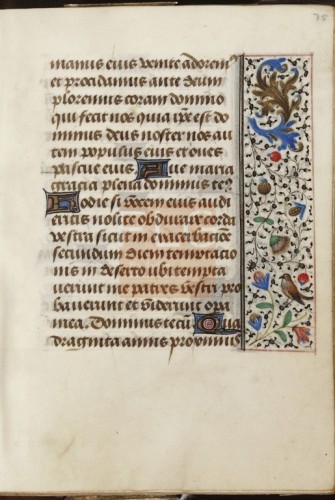 manus eius venite adorem
et procidamus ante deum
ploremus coram domino
qui fecit nos quia ipse est do
minus deus noster nos au
tem populus eius et oues
pascue eius Aue maria
gracia plena dominus tec
Hodie si vocem eius audi
eritis nolite obdurare corda
vestra sicut in exacerbacione
secundum diem temptacio
nis in deserto ubi tempta
uerunt me patres vestri pro
bauerunt et viderunt opa
mea. Dominus tecu Qua
draginta annis proximus